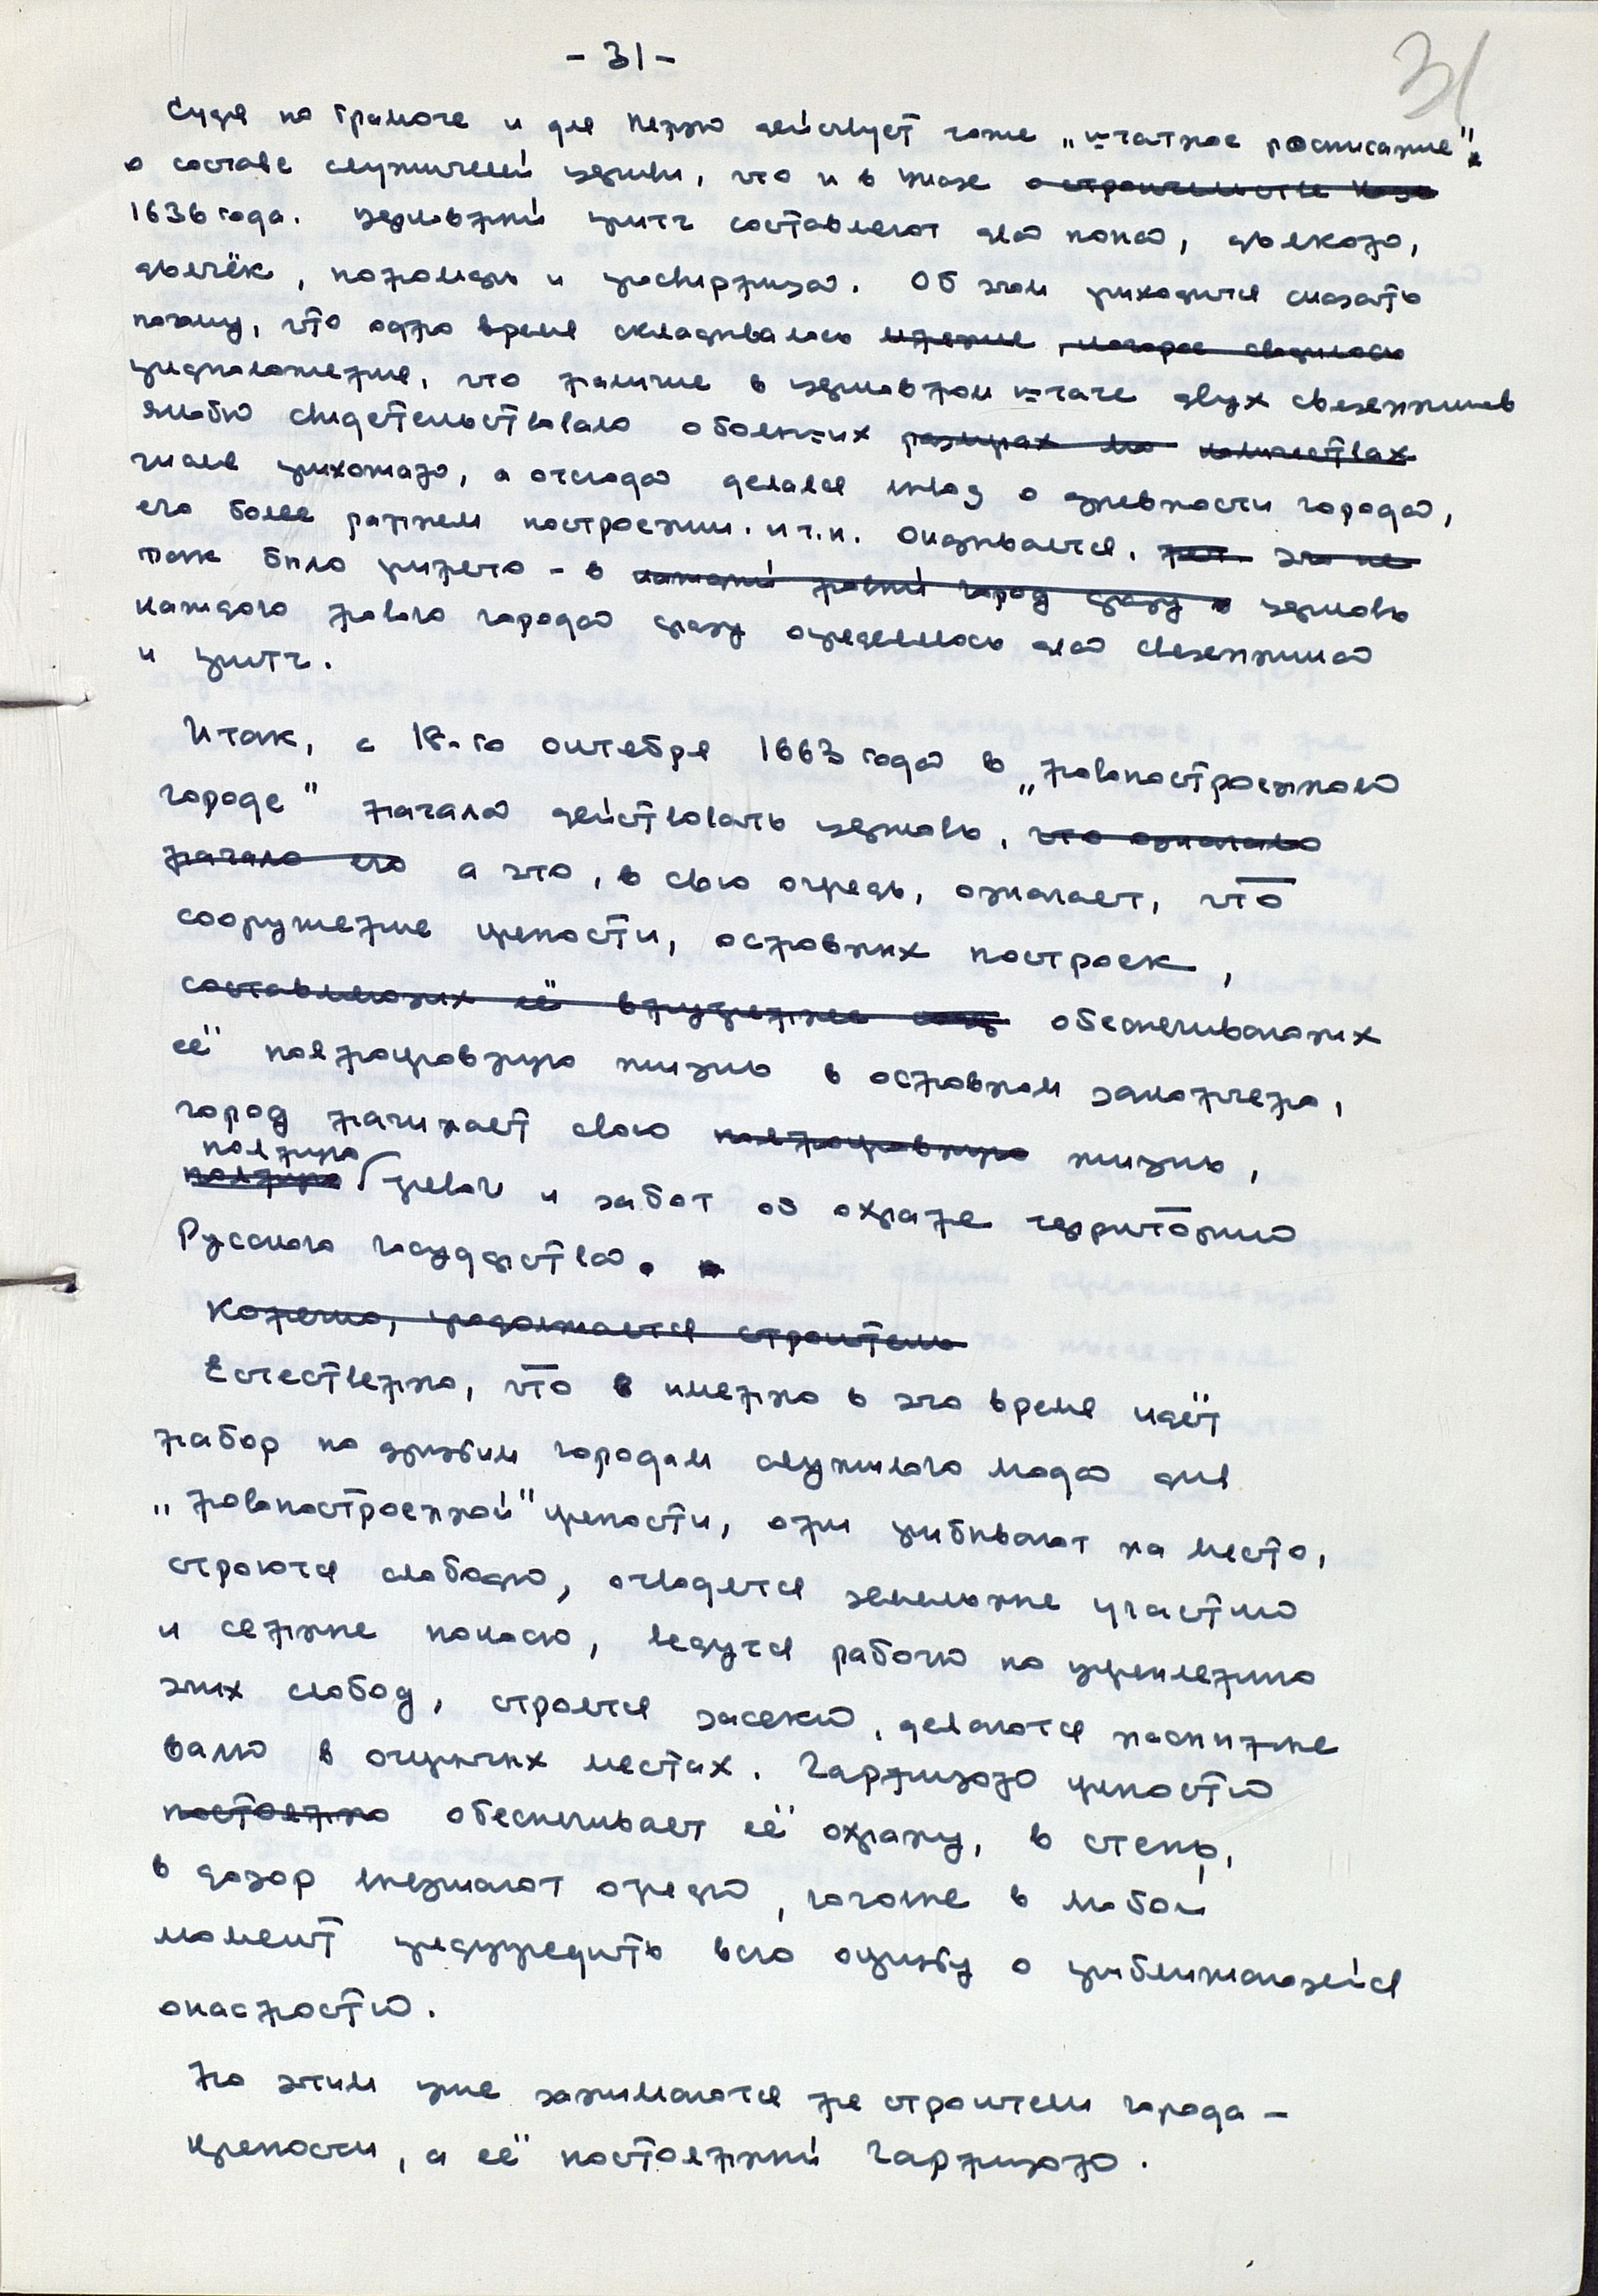 - 31 -
31
Судя по грамоте и для Пензы действует тоже „штатное росписание"
о составе служителей церкви, что и в указе о строительстве Козл
1636 года. Церковный притч составляют два попа, дьякон,
дьячёк, пономарь и просвирница. Об этом приходится сказать
потому, что одно время складывалось мнение, которое сводилось
предположение, что наличие в церковном штате двух священников
якобы свидетельствовало о больших размерах или количествах
числе прихожан, а отсюда делался вывод о древности города,
его более раннем построении. и т.п. Оказывается, нет. это не
так было принято - в каждый новый город сразу в церковь
каждого нового города сразу определялось два священника
и притч.
Итак, с 18-го октября 1663 года в „новопостроенном
городе" начала действовать церковь, что означало
начало его а это, в свою очередь, означает, что
сооружение крепости, основных построек,
составляющих её внутреннее обеспечивающих
её полнокровную жизнь в основном закончено,
город начинает свою полнокровную жизнь,
полную
полную тревог и забот об охране территории
Русского государства.
Конечно, продолжается строитель
Естественно, что в именно в это время идёт
набор по другим городам служилого люда для
„новопостроенной" крепости, они прибывают на место,
строются слободы, отводятся земельные участки
и сенные покосы, ведутся работы по укреплению
этих слобод, строятся засеки, делаются насыпные
валы в опасных местах. Гарнизон крепости
постоянно обеспечивает её охрану, в степь,
в дозор выезжают отряды, готовые в любой
момент предупредить всю округу о приближающейся
опасности.
Но этим уже занимаются не строители города -
крепости, а её постоянный гарнизон.